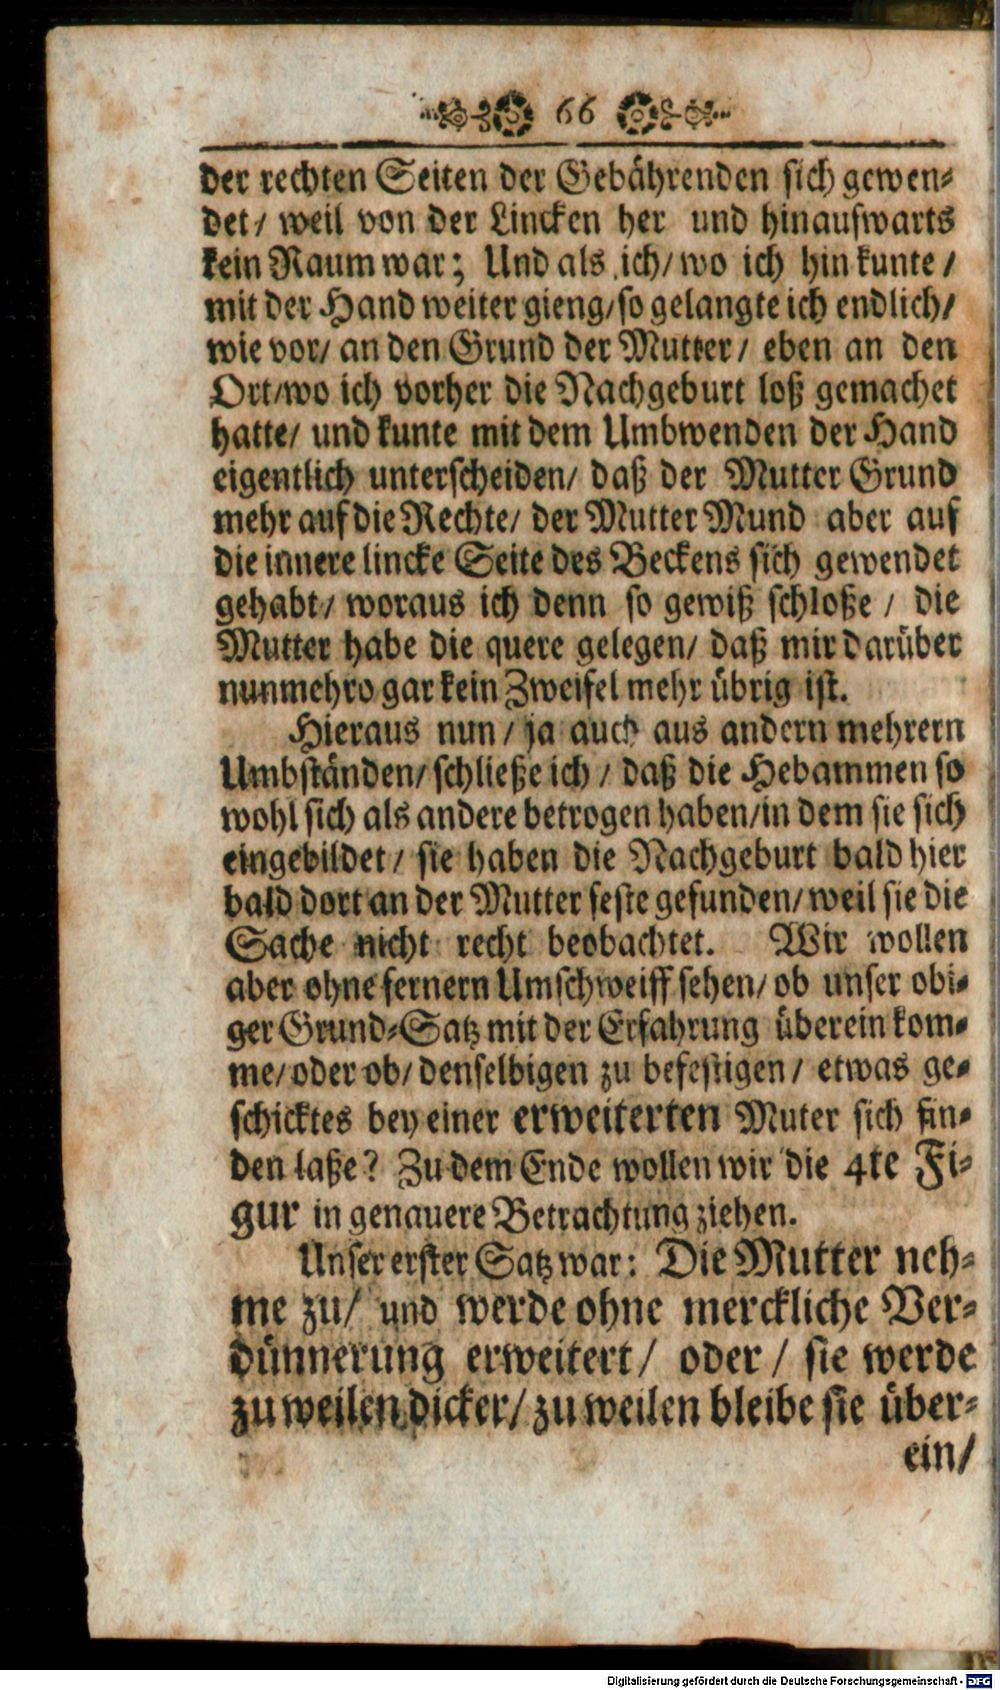 66
der rechten Seiten der Gebährenden sich gewen-
det/ weil von der Lincken her und hinaufwarts
kein Raum war; Und als ich/ wo ich hin kunte/
mit der Hand weiter gieng/ so gelangte ich endlich/
wie vor/ an den Grund der Mutter/ eben an den
Ort/ wo ich vorher die Nachgeburt loß gemachet
hatte/ und kunte mit dem Umbwenden der Hand
eigentlich unterscheiden/ daß der Mutter Grund
mehr auf die Rechte/ der Mutter Mund aber auf
die innere lincke Seite des Beckens sich gewendet
gehabt/ woraus ich denn so gewiß schloße/ die
Mutter habe die quere gelegen/ daß mir darüber
nunmehro gar kein Zweifel mehr übrig ist.
Hieraus nun/ ja auch aus andern mehrern
Umbständen/ schließe ich/ daß die Hebammen so
wohl sich als andere betrogen haben/ in dem sie sich
eingebildet/ sie haben die Nachgeburt bald hier
bald dort an der Mutter feste gefunden/ weil sie die
Sache nicht recht beobachtet. Wir wollen
aber ohne fernern Umschweiff sehen/ ob unser obi-
ger Grund-Satz mit der Erfahrung überein kom-
me/ oder ob/ denselbigen zu befestigen/ etwas ge-
schicktes bey einer erweiterten Muter sich fin-
den laße? Zu dem Ende wollen wir die 4te Fi-
gur in genauere Betrachtung ziehen.
Unser erster Satz war: Die Mutter neh-
me zu/ und werde ohne merckliche Ver-
dünnerung erweitert/ oder/ sie werde
zuweilen dicker/ zuweilen bleibe sie über-
ein/
Digitalisierung gefördert durch die Deutsche Forschungsgemeinschaft - DFG